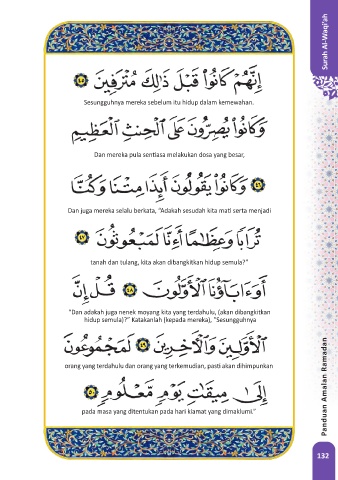 إِنَّهُمْ كَانُوا۟ قَبْلَ ذَٰلِكَ مُتْرَفِينَ ٤٥
Sesungguhnya mereka sebelum itu hidup dalam kemewahan.
وَكَانُوا۟ يُصِرُّونَ عَلَى ٱلْحِنثِ ٱلْعَظِيمِ
Dan mereka pula sentiasa melakukan dosa yang besar,
٤٦ وَكَانُوا۟ يَقُولُونَ أَئِذَا مِتْنَا وَكُنَّا
Dan juga mereka selalu berkata, "Adakah sesudah kita mati serta menjadi
تُرَابًا وَعِظَٰمًا أَءِنَّا لَمَبْعُوثُونَ ٤٧
tanah dan tulang, kita akan dibangkitkan hidup semula?"
أَوَءَابَآؤُنَا ٱلْأَوَّلُونَ ٤٨ قُلْ إِنَّ
"Dan adakah juga nenek moyang kita yang terdahulu, (akan dibangkitkan
hidup semula)?" Katakanlah (kepada mereka), "Sesungguhnya
ٱلْأَوَّلِينَ وَٱلْـَٔاخِرِينَ ٤٩ لَمَجْمُوعُونَ
orang yang terdahulu dan orang yang terkemudian, pasti akan dihimpunkan
إِلَىٰ مِيقَٰتِ يَوْمٍ مَّعْلُومٍ ٥٠
pada masa yang ditentukan pada hari kiamat yang dimaklumi."
Surah Al-Waqi'ah
Panduan Amalan Ramadan
132